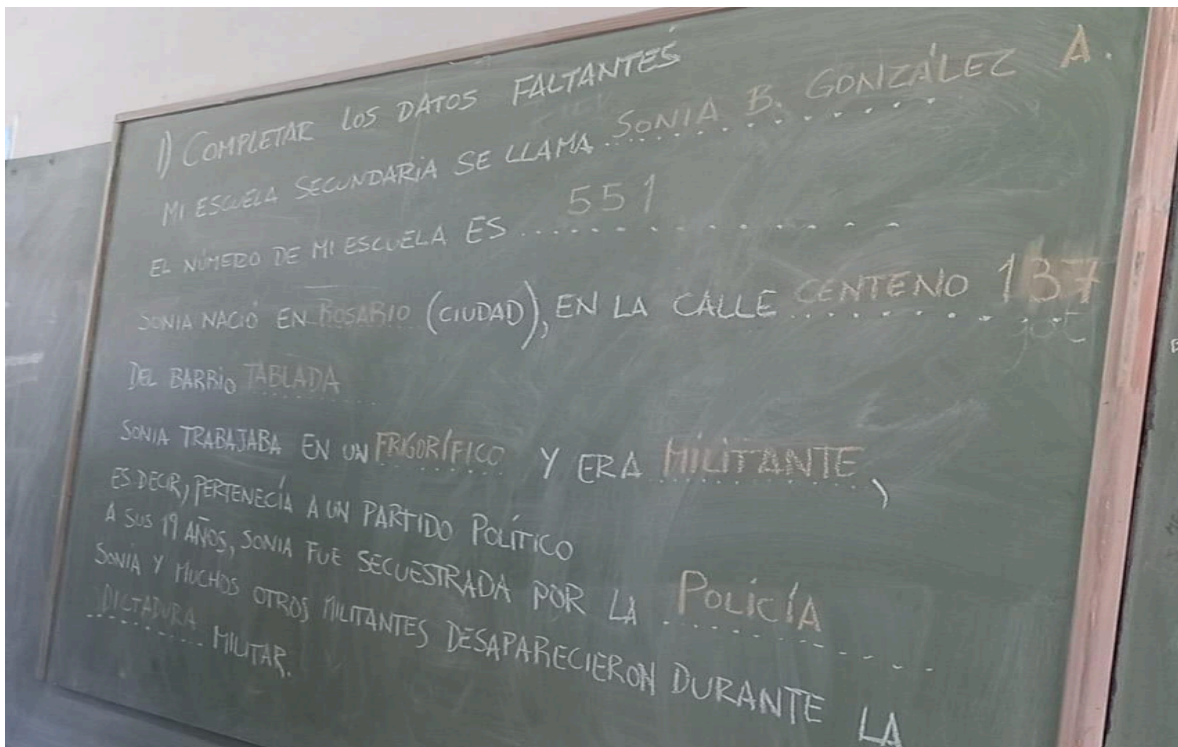 1) COMPLETAR LOS DATOS FALTANTES
MI ESCUELA SECUNDARIA SE LLAMA SONIA B. GONZÁLEZ A.
EL NÚMERO DE MI ESCUELA ES 551
SONIA NACIÓ EN ROSARIO (CIUDAD), EN LA CALLE CENTENO 137
DEL BARRIO TABLADA
SONIA TRABAJABA EN UN FRIGORÍFICO Y ERA MILITANTE,
ES DECIR, PERTENECÍA A UN PARTIDO POLÍTICO
A SUS 19 AÑOS, SONIA FUE SECUESTRADA POR LA POLICÍA
SONIA Y MUCHOS OTROS MILITANTES DESAPARECIERON DURANTE LA
DICTADURA MILITAR.